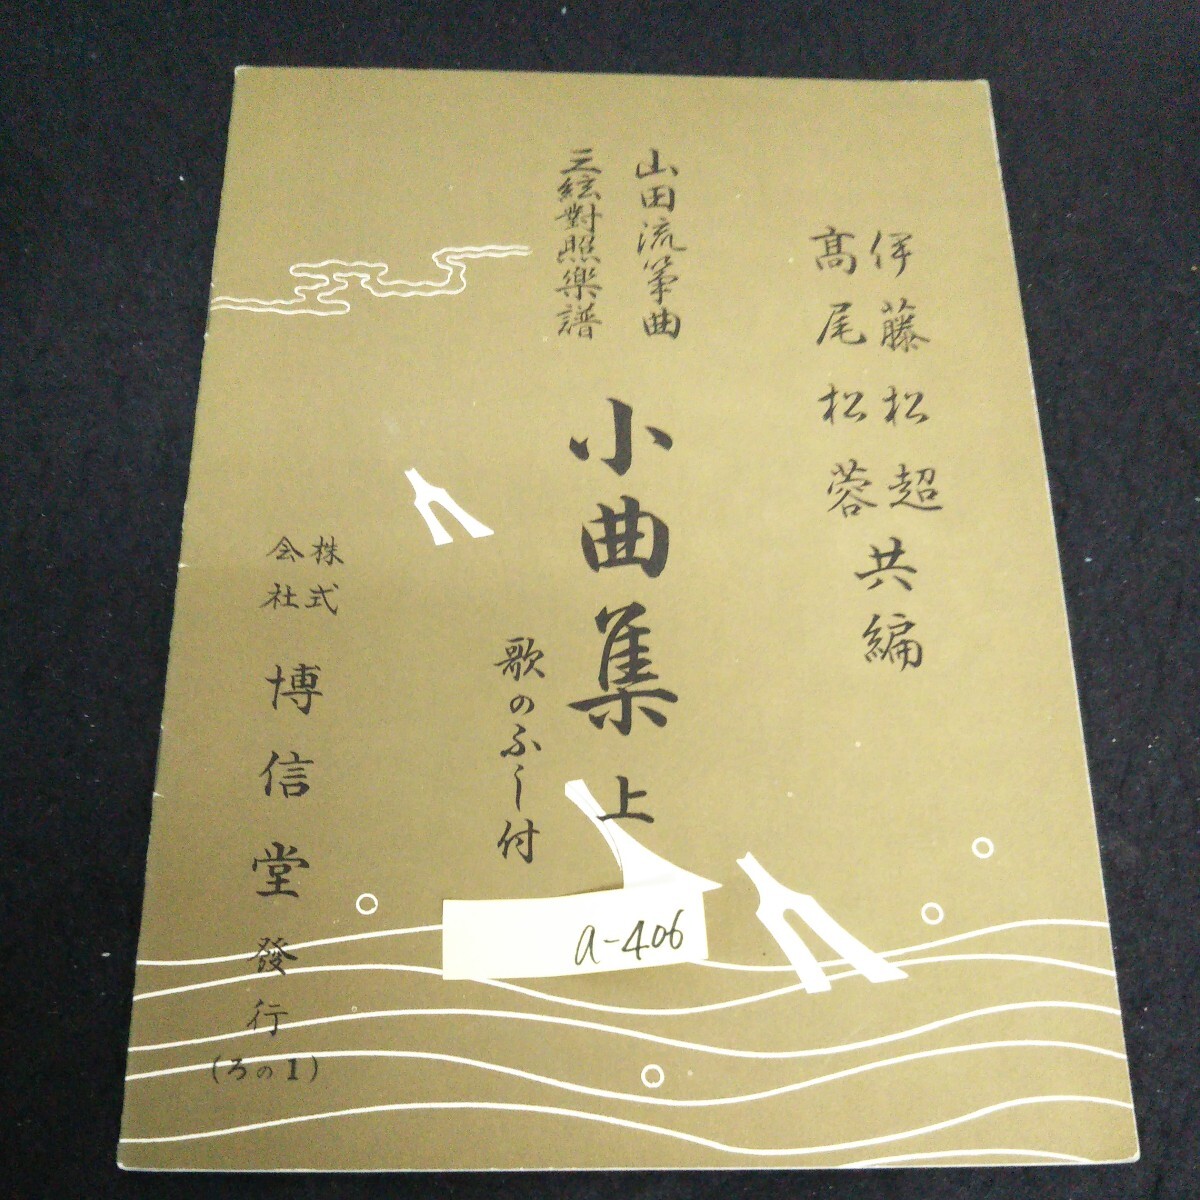 伊藤松超
髙尾松蓉
共編
山田流箏曲
三絃對照樂譜
小曲集 上
歌のふし付
株式
会社
博信堂發行
(ろの1)
a-406